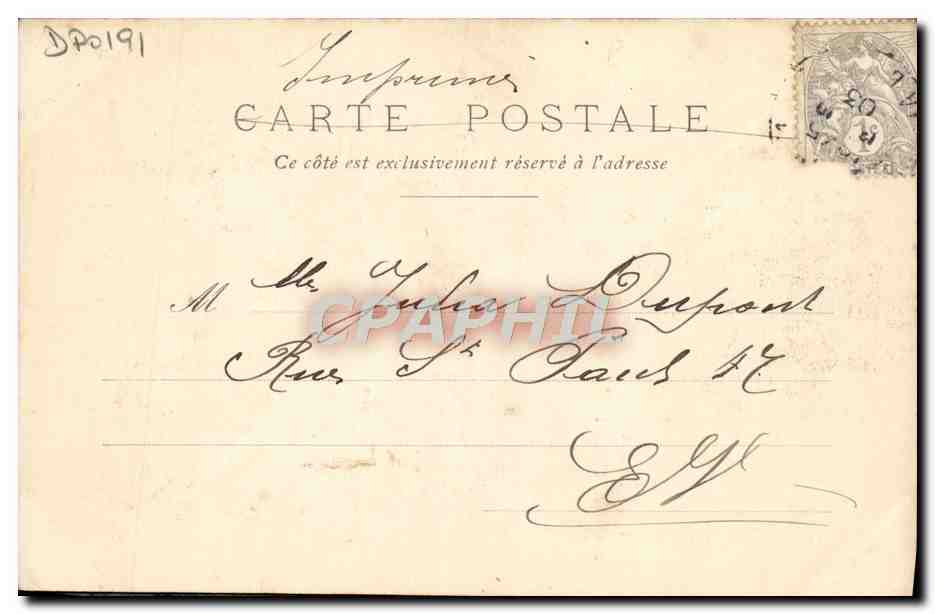 DP0191
Imprimé
CARTE POSTALE
Ce côté est exclusivement réservé à l'adresse
M lle Julia Dupont
Rue St Paul 47
E V
CPAPHIL
03